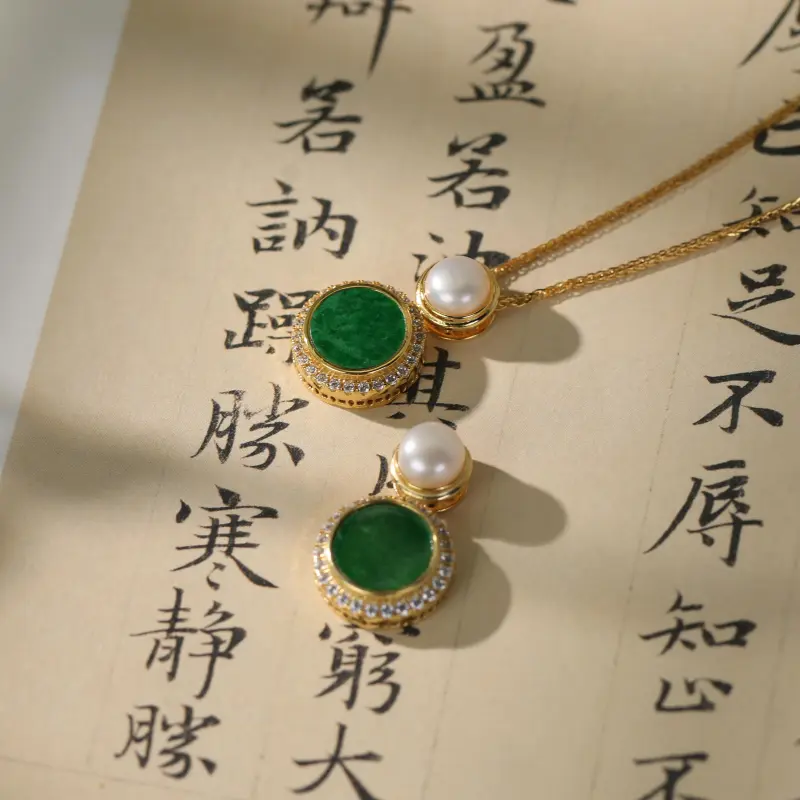 知足不辱知止不
盈若其窮大
若訥躁勝寒静勝